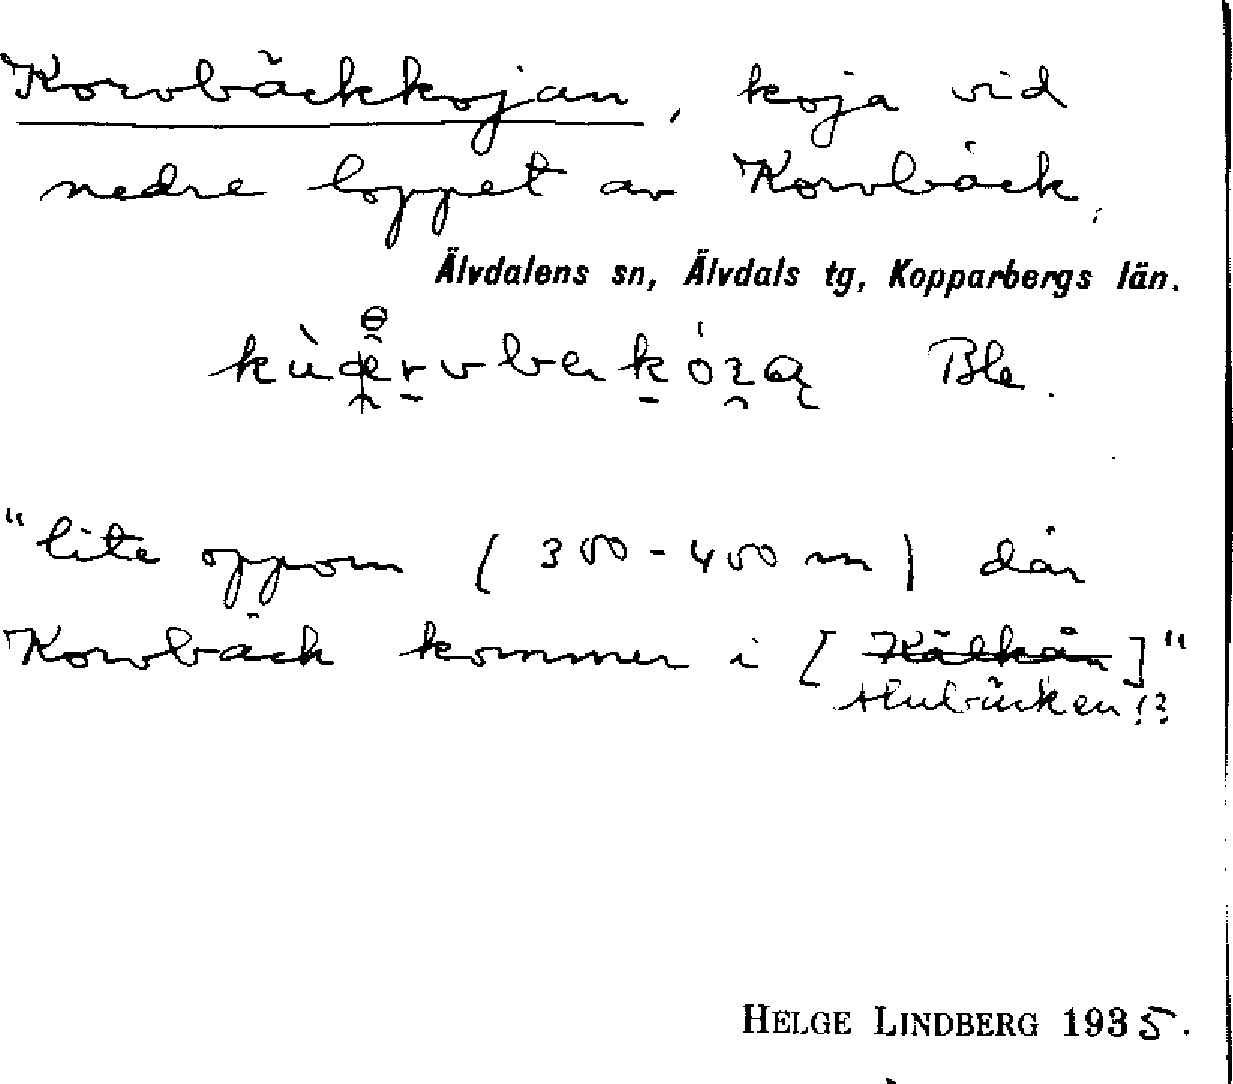 Korvbäckkojan, koja vid
nedre loppet av Korvbäck.
Älvdalens sn, Älvdals tg, Kopparbergs län.
Ble.
"lite oppom (300-400 m) där
Korvbäck kommer i [Kälkån]"
HELGE LINDBERG 1935.